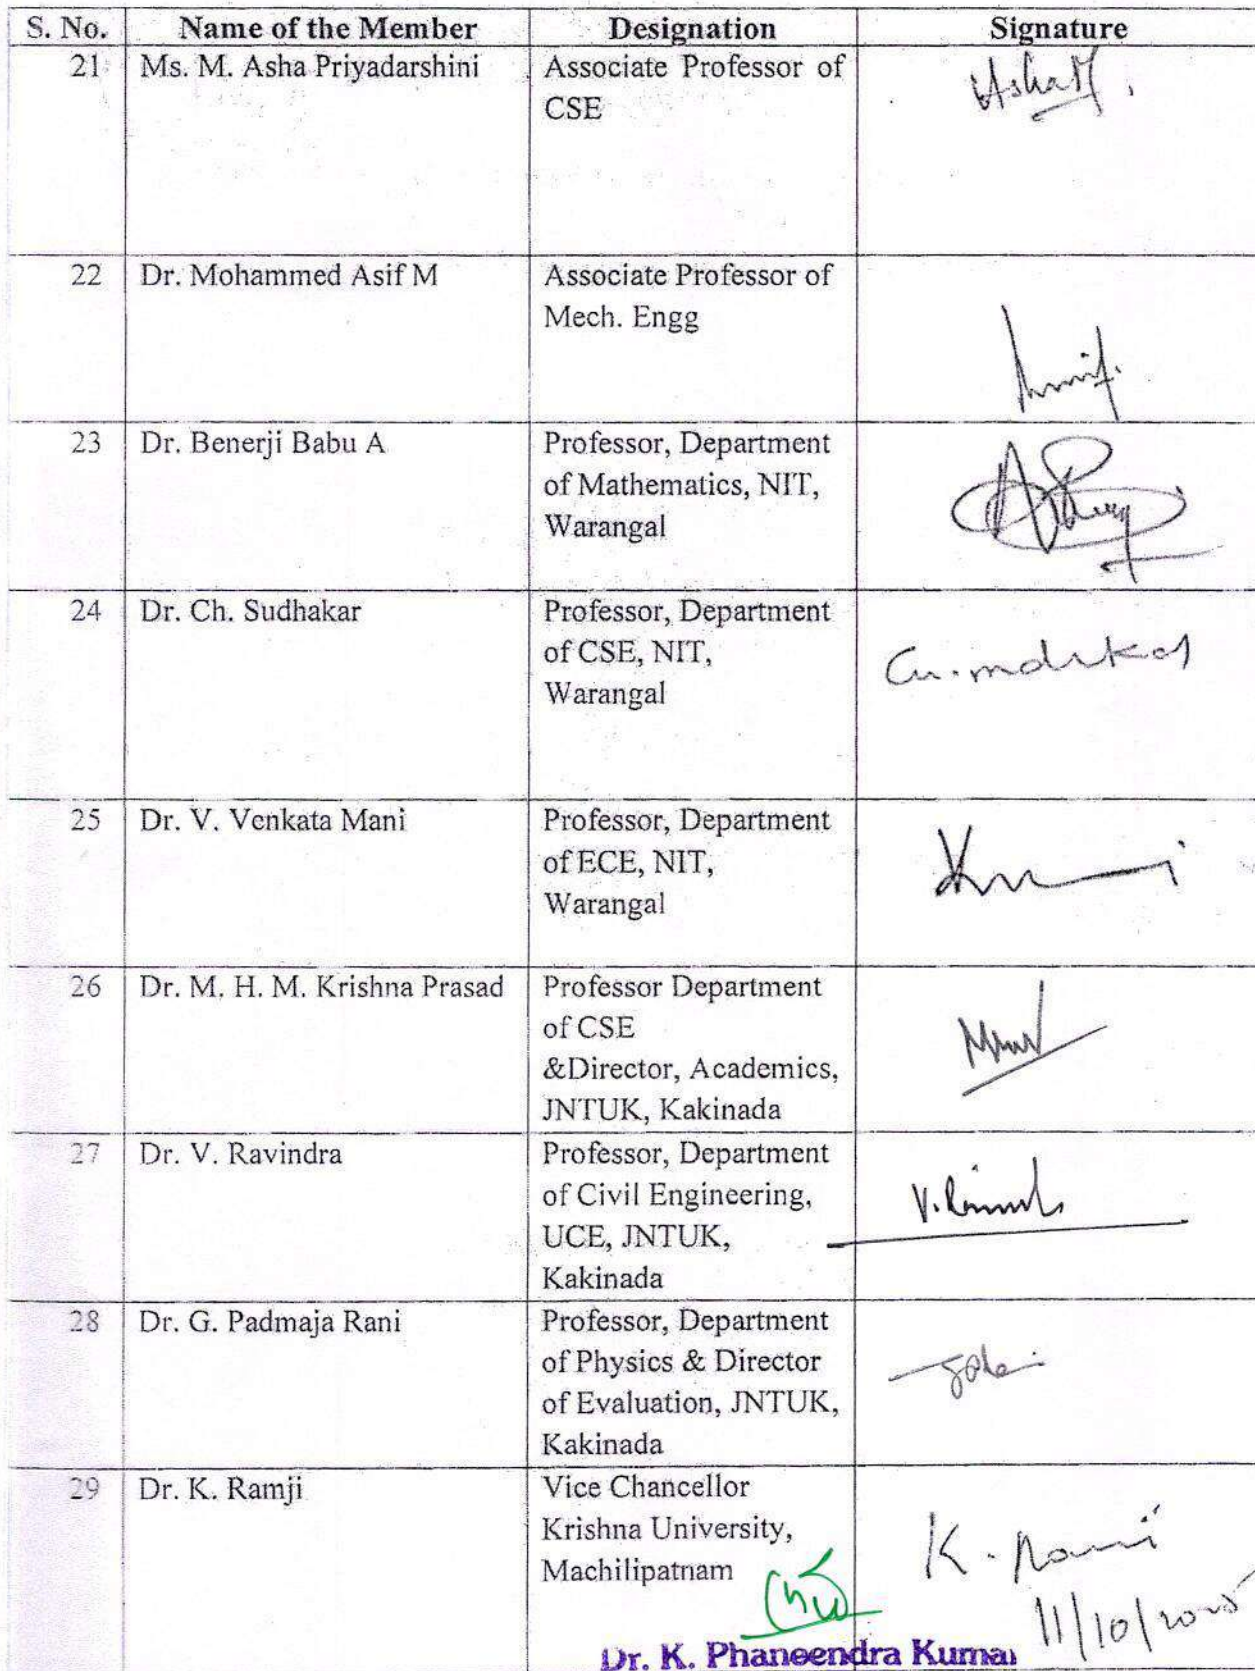 S. No. Name of the Member Designation Signature
21 Ms. M. Asha Priyadarshini Associate Professor of
CSE
AshaM.
22 Dr. Mohammed Asif M Associate Professor of
Mech. Engg
23 Dr. Benerji Babu A Professor, Department
of Mathematics, NIT,
Warangal
24 Dr. Ch. Sudhakar Professor, Department
of CSE, NIT,
Warangal
25 Dr. V. Venkata Mani Professor, Department
of ECE, NIT,
Warangal
26 Dr. M. H. M. Krishna Prasad Professor Department
of CSE
&Director, Academics,
JNTUK, Kakinada
27 Dr. V. Ravindra Professor, Department
of Civil Engineering,
UCE, JNTUK,
Kakinada
28 Dr. G. Padmaja Rani Professor, Department
of Physics & Director
of Evaluation, JNTUK,
Kakinada
29 Dr. K. Ramji Vice Chancellor
Krishna University,
Machilipatnam
K. Ramji
11/10/2025
Dr. K. Phaneendra Kumar